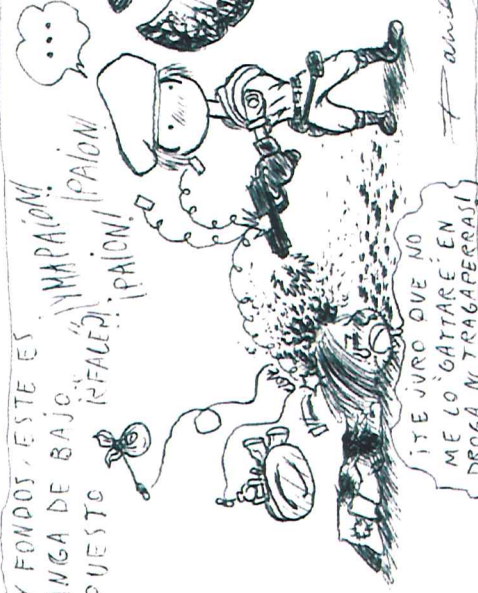 Y FONDOS, ESTE ES
NGA DE BAJO
PUESTO
¡YMAPAION!
¡PAION!
¡PAION!
...
¡TE JURO QUE NO
ME LO GATTARÉ EN
DROGA NI TRAGAPERRAS!